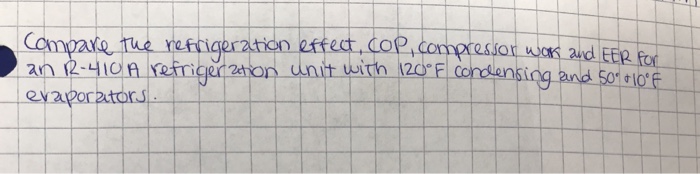 Compare the refrigeration effect, COP, compressor work and EER for
an R-410A refrigeration unit with 120°F condensing and 50° & 10°F
evaporators.